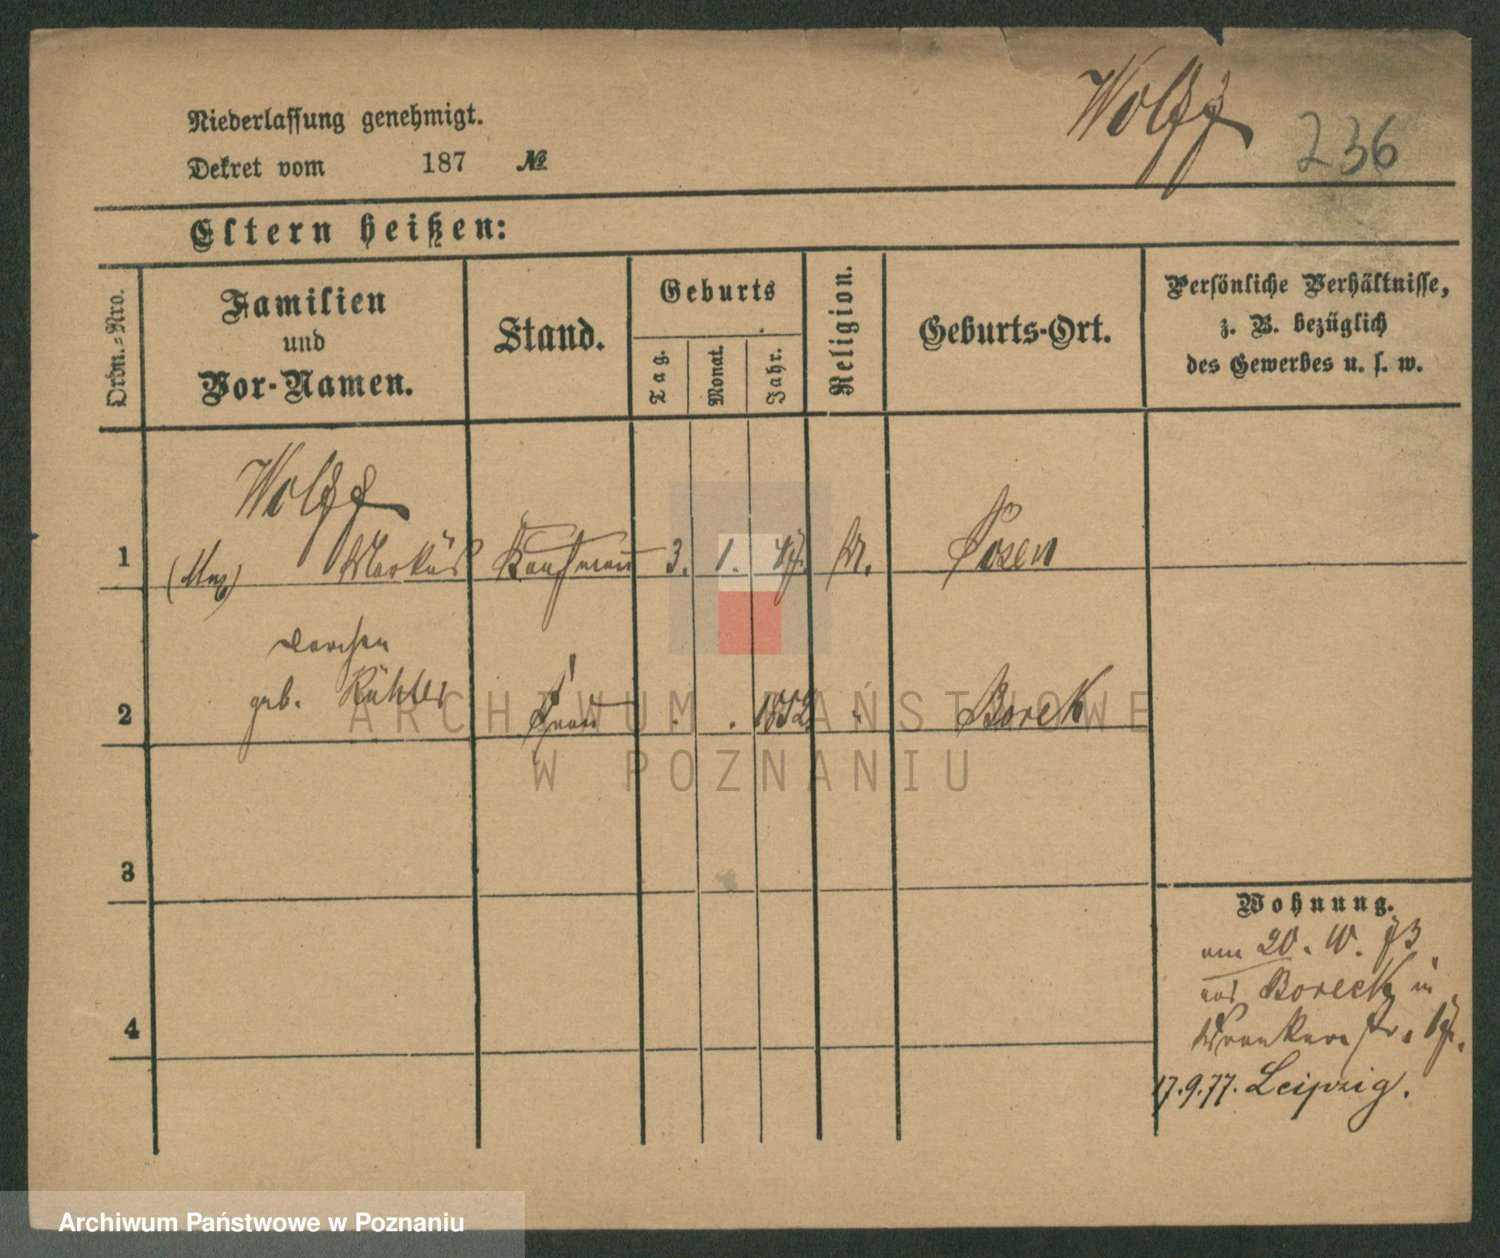 Wolff 236
Niederlassung genehmigt.
Dekret vom 187 №
Eltern heißen:
Ordn.=Nro.
Familien
und
Vor-Namen.
Stand.
Geburts
Tag.
Monat.
Jahr.
Religion.
Geburts-Ort.
Persönliche Verhältnisse,
z. B. bezüglich
des Gewerbes u. s. w.
Wolff
1 Markus Kaufmann 3. 1. 47. M. Posen
Dorchen
2 geb. Frau 1852 Borek
3
4
Wohnung.
am 20. 10. 73
aus Boreck in
Wronkerstr. 17.
17.9.77. Leipzig.
ARCHIWUM PAŃSTWOWE
W POZNANIU
Archiwum Państwowe w Poznaniu